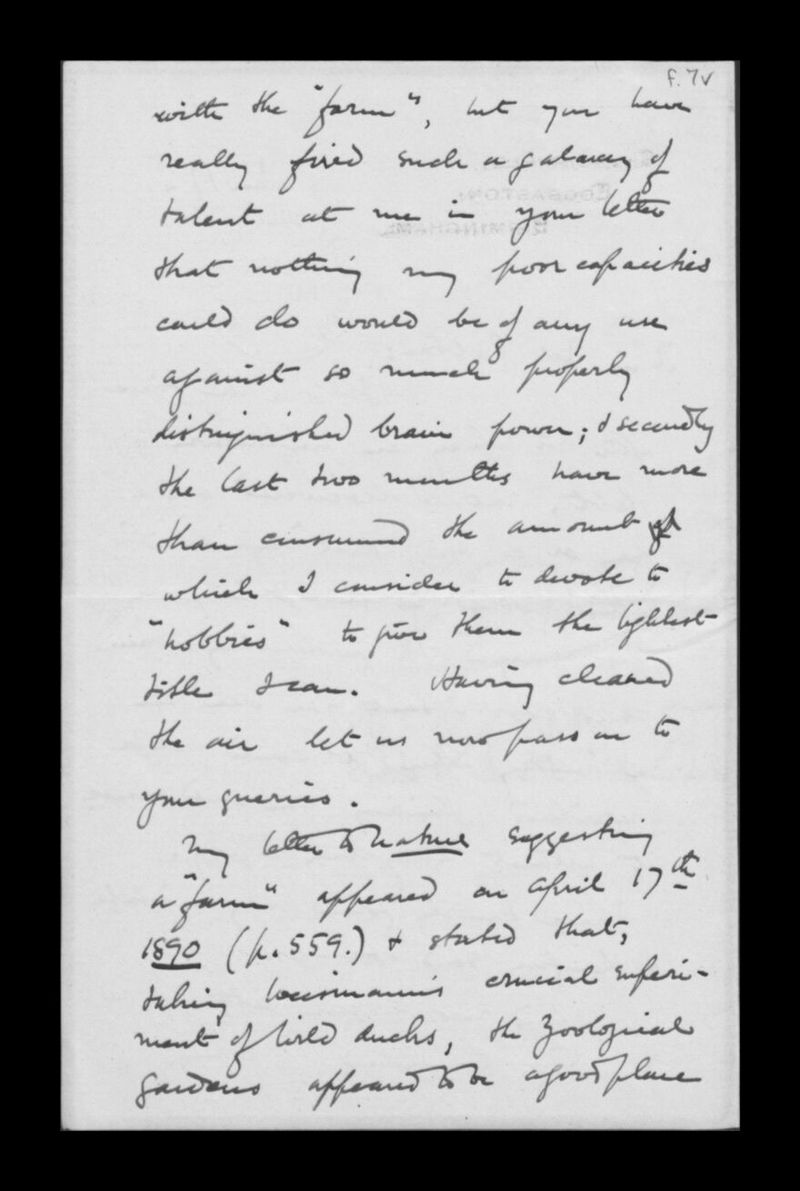 f. 7v
with the "farm", but you have
really fired such a galaxy of
talent at me in your letter
that nothing my poor capacities
could do would be of any use
against so much properly
distinguished brain power; & secondly
the last two months have more
than consumed the amount of
which I consider to devote to
"hobbies" to give them the lightest
title I can. Having cleared
the air let us now pass on to
your queries.
My letter to Nature suggesting
a "farm" appeared on April 17th
1890 (p. 559.) & stated that,
taking Weismann's crucial experi-
ment of wild ducks, the Zoological
Gardens appeared to be a good place
EDGBASTON.
BIRMINGHAM.